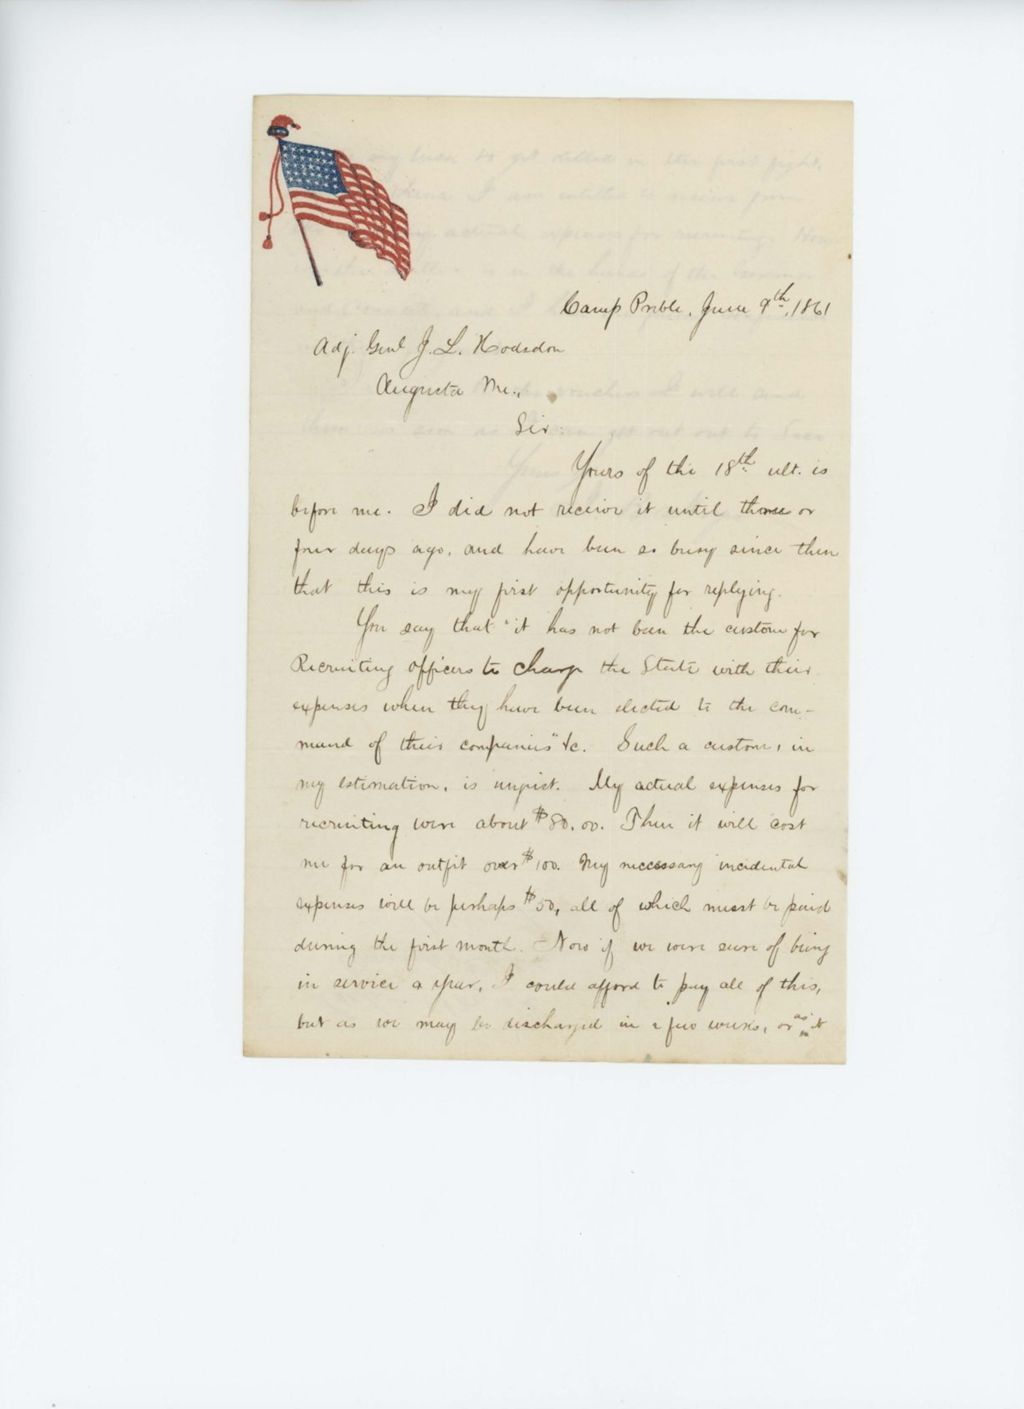 Camp Preble, June 9th, 1861
Adj. Genl J. L. Hodsdon
Augusta Me.,
Sir:
Yours of the 18th ult. is
before me. I did not receive it until three or
four days ago, and have been so busy since then
that this is my first opportunity for replying.
You say that "it has not been the custom for
Recruiting officers to charge the State with their
expenses when they have been elected to the com-
mand of their companies" &c. Such a custom, in
my estimation, is unjust. My actual expenses for
recruiting were about $80.00. Then it will cost
me for an outfit over $100. My necessary incidental
expenses will be perhaps $50, all of which must be paid
during the first month. Now if we were sure of being
in service a year, I could afford to pay all of this,
but as we may be discharged in a few weeks, or as it